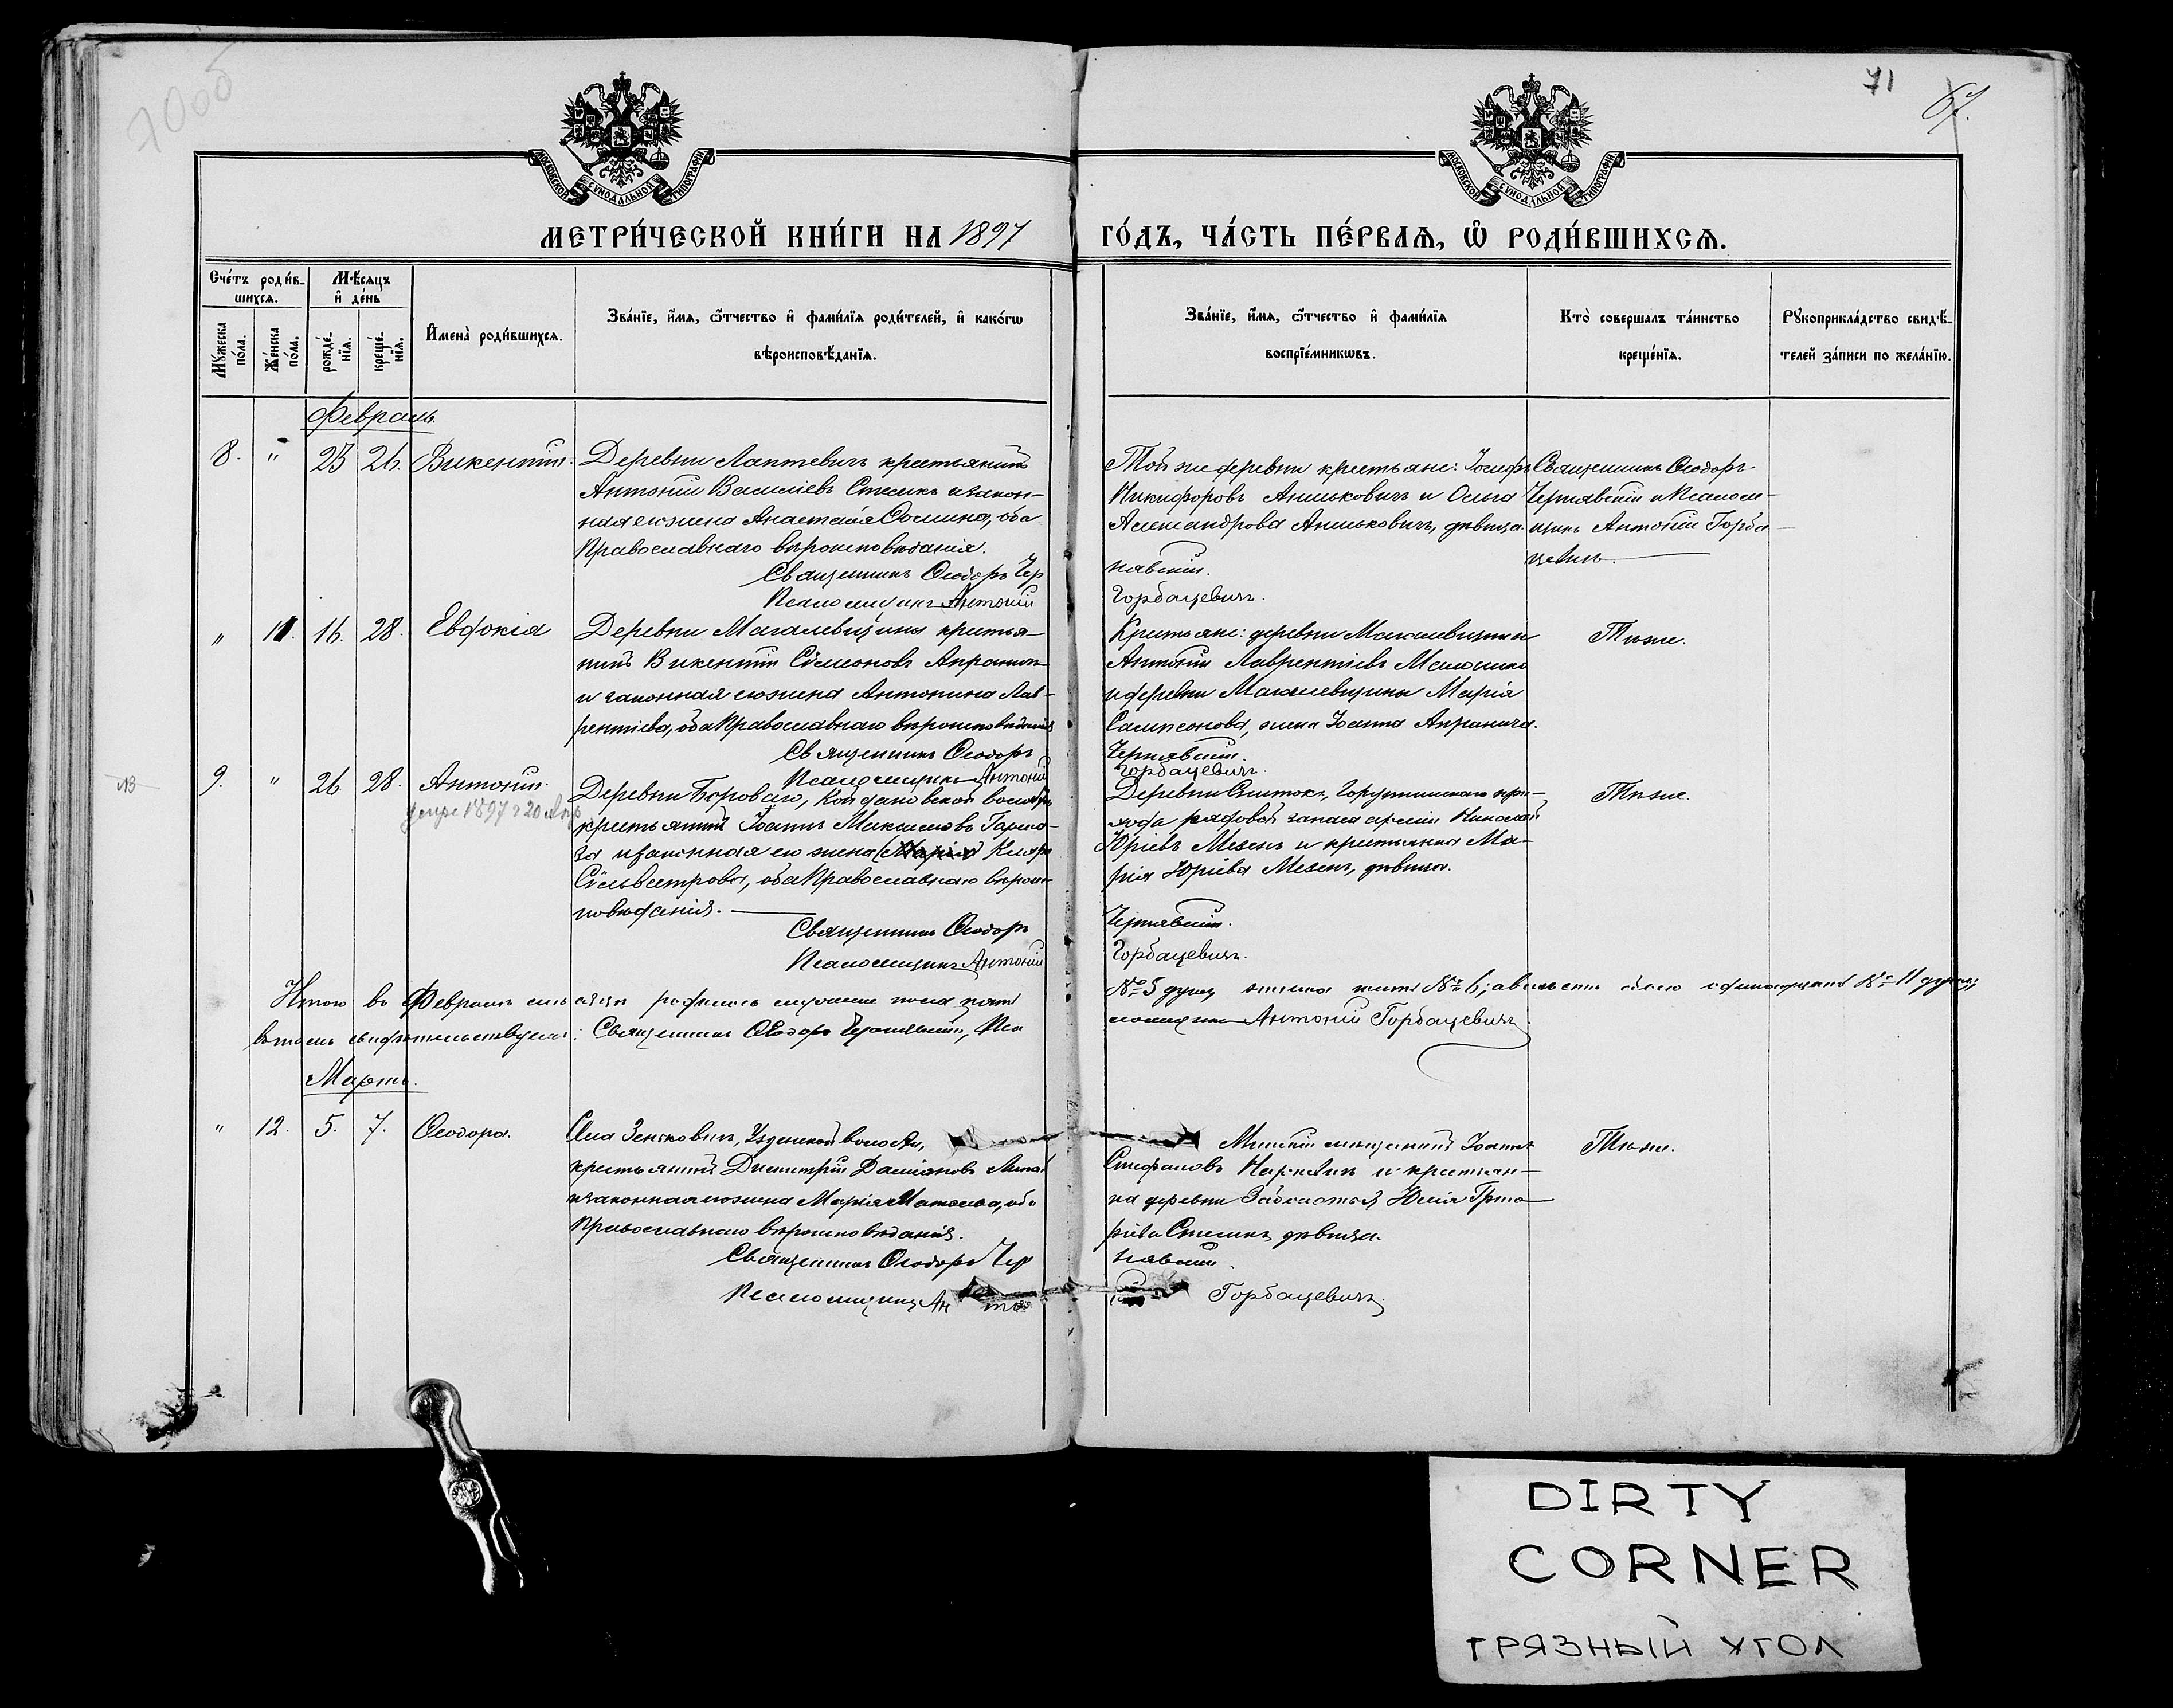 70об
71
67.
МОСКОВСКОЙ СѴНОДАЛЬНОЙ ТИПОГРАФІИ.
МОСКОВСКОЙ СѴНОДАЛЬНОЙ ТИПОГРАФІИ.
МЕТРИ́ЧЕСКОЙ КНИ́ГИ НА 1897
ГО́ДЪ, ЧА́СТЬ ПЕ́РВАѦ, Ѡ҆ РОДИ́ВШИХСѦ.
Сче́тъ роди́в-
шихсѧ.
Мѣ́сѧцъ
и҆ де́нь
Мꙋ́жеска
по́ла.
Же́нска
по́ла.
рожде́-
нїѧ.
креще́-
нїѧ.
И҆мена̀ роди́вшихсѧ.
Зва́нїе, и҆́мѧ, ѻ҆́тчество и҆ фами́лїѧ роди́телей, и҆ како́гѡ
вѣроисповѣ́данїѧ.
Зва́нїе, и҆́мѧ, ѻ҆́тчество и҆ фами́лїѧ
воспрїе́мникѡвъ.
Кто̀ совершалъ та́инство
креще́нїѧ.
Рꙋкоприкла́дство свидѣ́-
телей за́писи по жела́нїю.
Февраль.
8. " 25 26. Викентій. Деревни Лаптевичъ крестьянинъ
Антоній Василіевъ Стасикъ и закон-
ная его жена Анастасія Ѳомина, оба
Православнаго вѣроисповѣданія.
Священникъ Ѳеодоръ Чер
Псаломщикъ Антоній
Той же деревни крестьяне: Іосифъ
Никифоровъ Анишковичъ и Ольга
Александрова Анишковичъ, дѣвица.
нявскій.
Горбацевичъ.
Священникъ Ѳеодоръ
Чернявскій и Псалом-
щикъ Антоній Горба-
цевичъ.
" 11. 16. 28. Евдокія Деревни Магалевщины крестья-
нинъ Викентій Сѵмеоновъ
и законная его жена Антонина Лав-
рентіева, оба Православнаго вѣроисповѣданія
Священникъ Ѳеодоръ
Псаломщикъ Антоній
Крестьяне: деревни Магалевщины
Антоній Лаврентіевъ
и деревни Магалевщины Марія
Сампсонова, жена Іоанна
Чернявскій.
Горбацевичъ.
Тѣже.
NB 9. " 26 28. Антоній.
умре 1897 г 20 Апр
Деревни Бороваго, Койдановской волости
крестьянинъ Іоаннъ Максимовъ
и законная его жена (Марія) Клара
Сѵльвестрова, оба Православнаго вѣроис-
повѣданія.
Священникъ Ѳеодоръ
Псаломщикъ Антоній
Деревни при-
хода рядовой запаса арміи Николай
Юріевъ Мезенъ и крестьянка Ма-
рія Юріева Мезенъ, дѣвица.
Чернявскій.
Горбацевичъ.
Тѣже.
Итого въ Февралѣ мѣсяцѣ родилось мужеска пола пять
№ 5 душъ, женска шесть № 6; а всего обоего одинадцать № 11 душъ;
въ чемъ свидѣтельствуемъ: Священникъ Ѳеодоръ Чернявскій, Пса
ломщикъ Антоній Горбацевичъ.
Мартъ.
" 12. 5. 7. Ѳеодора. Села Зеньковичъ, Узденской волости,
крестьянинъ Димитрій Даміановъ
и законная его жена Марія оба
Православнаго вѣроисповѣданія.
Священникъ Ѳеодоръ Чер
Псаломщикъ Анто
Минскій мѣщанинъ Іоаннъ
Стефановъ и крестьян-
ка деревни Юлія Григо-
ріева Стасикъ, дѣвица.
нявскій.
Горбацевичъ.
Тѣже.
DIRTY
CORNER
ГРЯЗНЫЙ УГОЛ